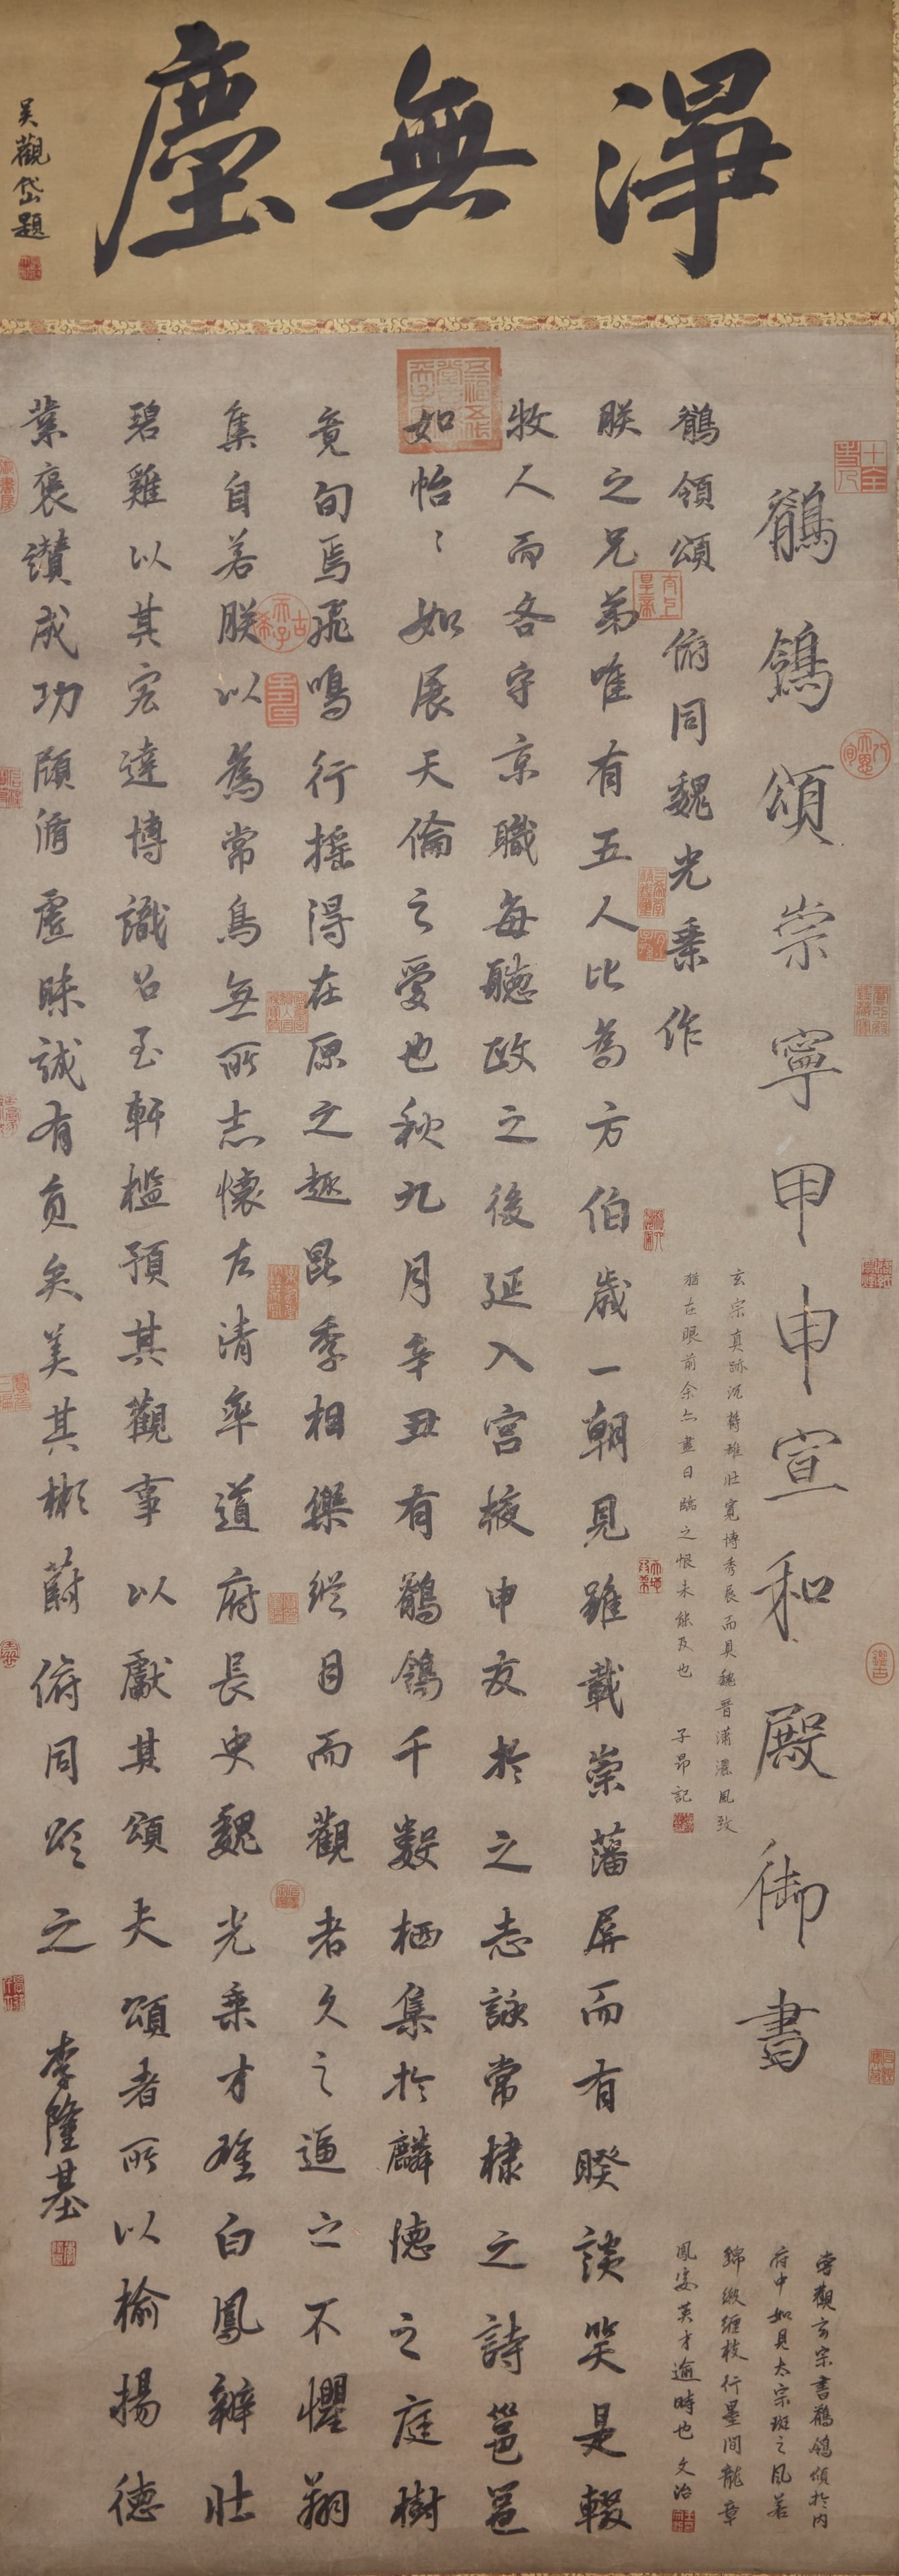 淨無塵
吳觀岱題
鶺鴒頌崇寧甲申宣和殿御書
玄宗真跡沉鬱雄壯寬博秀展而具魏晉瀟灑風致
猶在眼前余亦盡日臨之恨未能及也 子昂記
旁觀玄宗書鶺鴒頌於內
府中如見太宗斑之風若
錦緞纏枝行墨間龍章
鳳姿英才逾時也 文治
鶺領頌 俯同魏光乘作
朕之兄弟唯有五人比為方伯歲一朝見雖載崇藩屏而有睽談笑是輟
牧人而各守京職每聽政之後延入宮掖申友於之志詠常棣之詩邕邕
如怡〻如展天倫之愛也秋九月辛丑有鶺鴒千數栖集於麟德之庭樹
竟旬焉飛鳴行搖得在原之趣昆季相樂縱目而觀者久之逼之不懼翔
集自若朕以為常鳥無所志懷左清率道府長史魏光乘才雄白鳳辯壯
碧雞以其宏達博識召至軒檻預其觀事以獻其頌夫頌者所以榆揚德
業褒讚成功顧脩虛昧誠有負矣美其彬蔚俯同頌之
李隆基